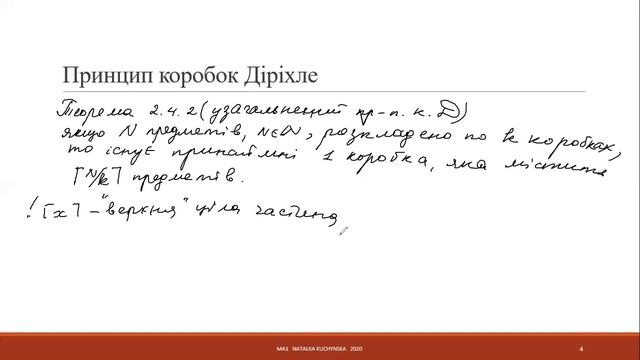 Принцип коробок Діріхле
Теорема 2.4.2 (узагальнений пр-п. к. D)
якщо N предметів, N∈ℕ, розкладено по k коробках,
то існує принаймні 1 коробка, яка містить
⌈N/k⌉ предметів.
! ⌈x⌉ – "верхня" ціла частина
MA1 NATALIIA KUCHYNSKA 2020
4